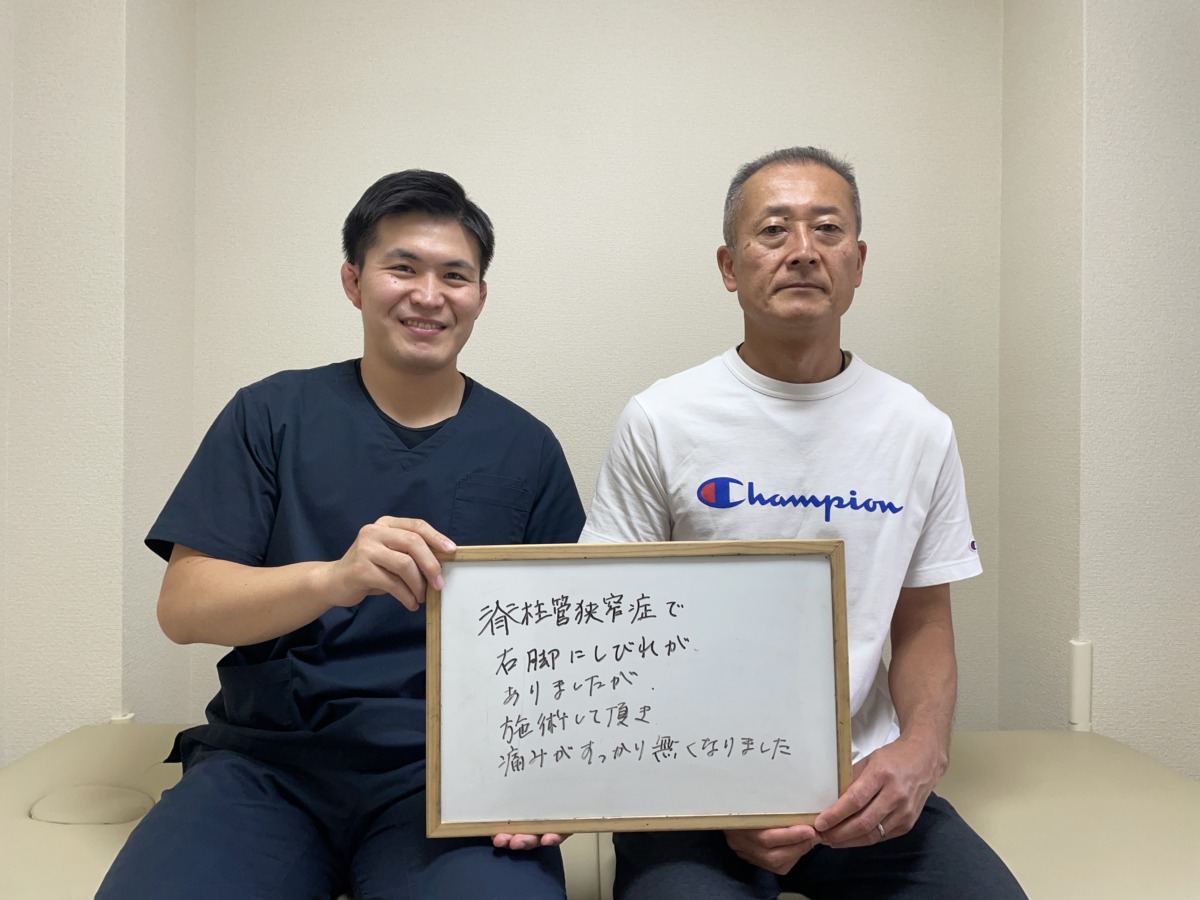 Champion
脊柱管狭窄症で
右脚にしびれが
ありましたが、
施術して頂き
痛みがすっかり無くなりました